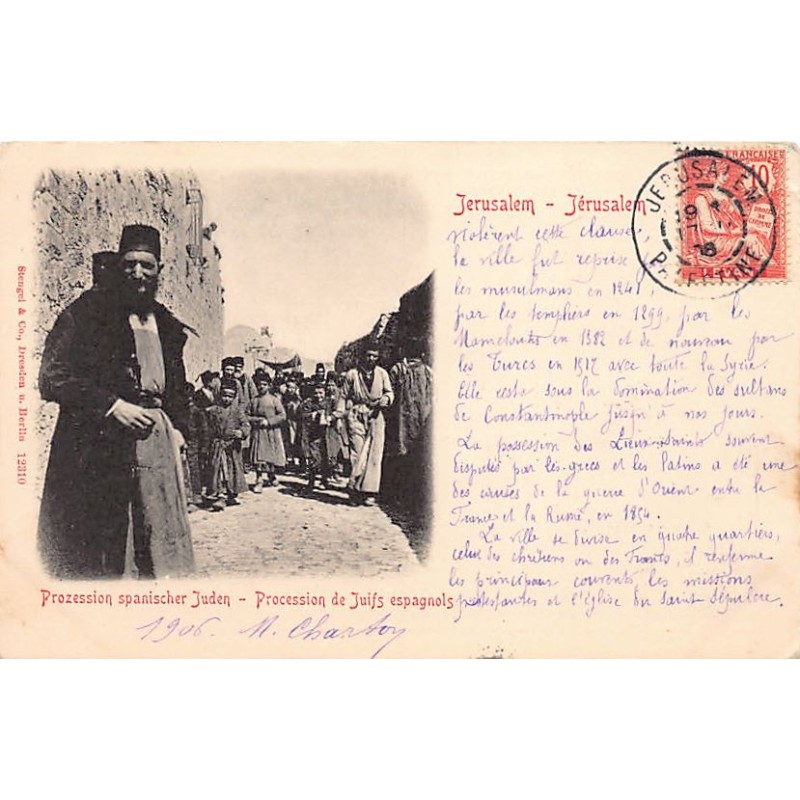 Jerusalem - Jérusalem
FRANÇAISE
10
JERUSALEM
PALESTINE
violèrent cette clause,
la ville fut reprise
les musulmans en 1241,
par les templiers en 1299, par les
Mamelouks en 1382 et de nouveau par
les Turcs en 1517 avec toute la Syrie.
Elle resta sous la domination des sultans
de Constantinople jusqu'à nos jours.
La possession des Lieux-Saints souvent
disputés par les grecs et les latins a été une
des causes de la guerre d'Orient entre la
France et la Russie, en 1854.
La ville se divise en quatre quartiers,
celui des chrétiens ou des Francs, il renferme
les principaux couvents, les missions
protestantes et l'église du Saint Sépulcre.
Stengel & Co., Dresden u. Berlin 12310
Prozession spanischer Juden - Procession de Juifs espagnols
1906 M. Chartoy